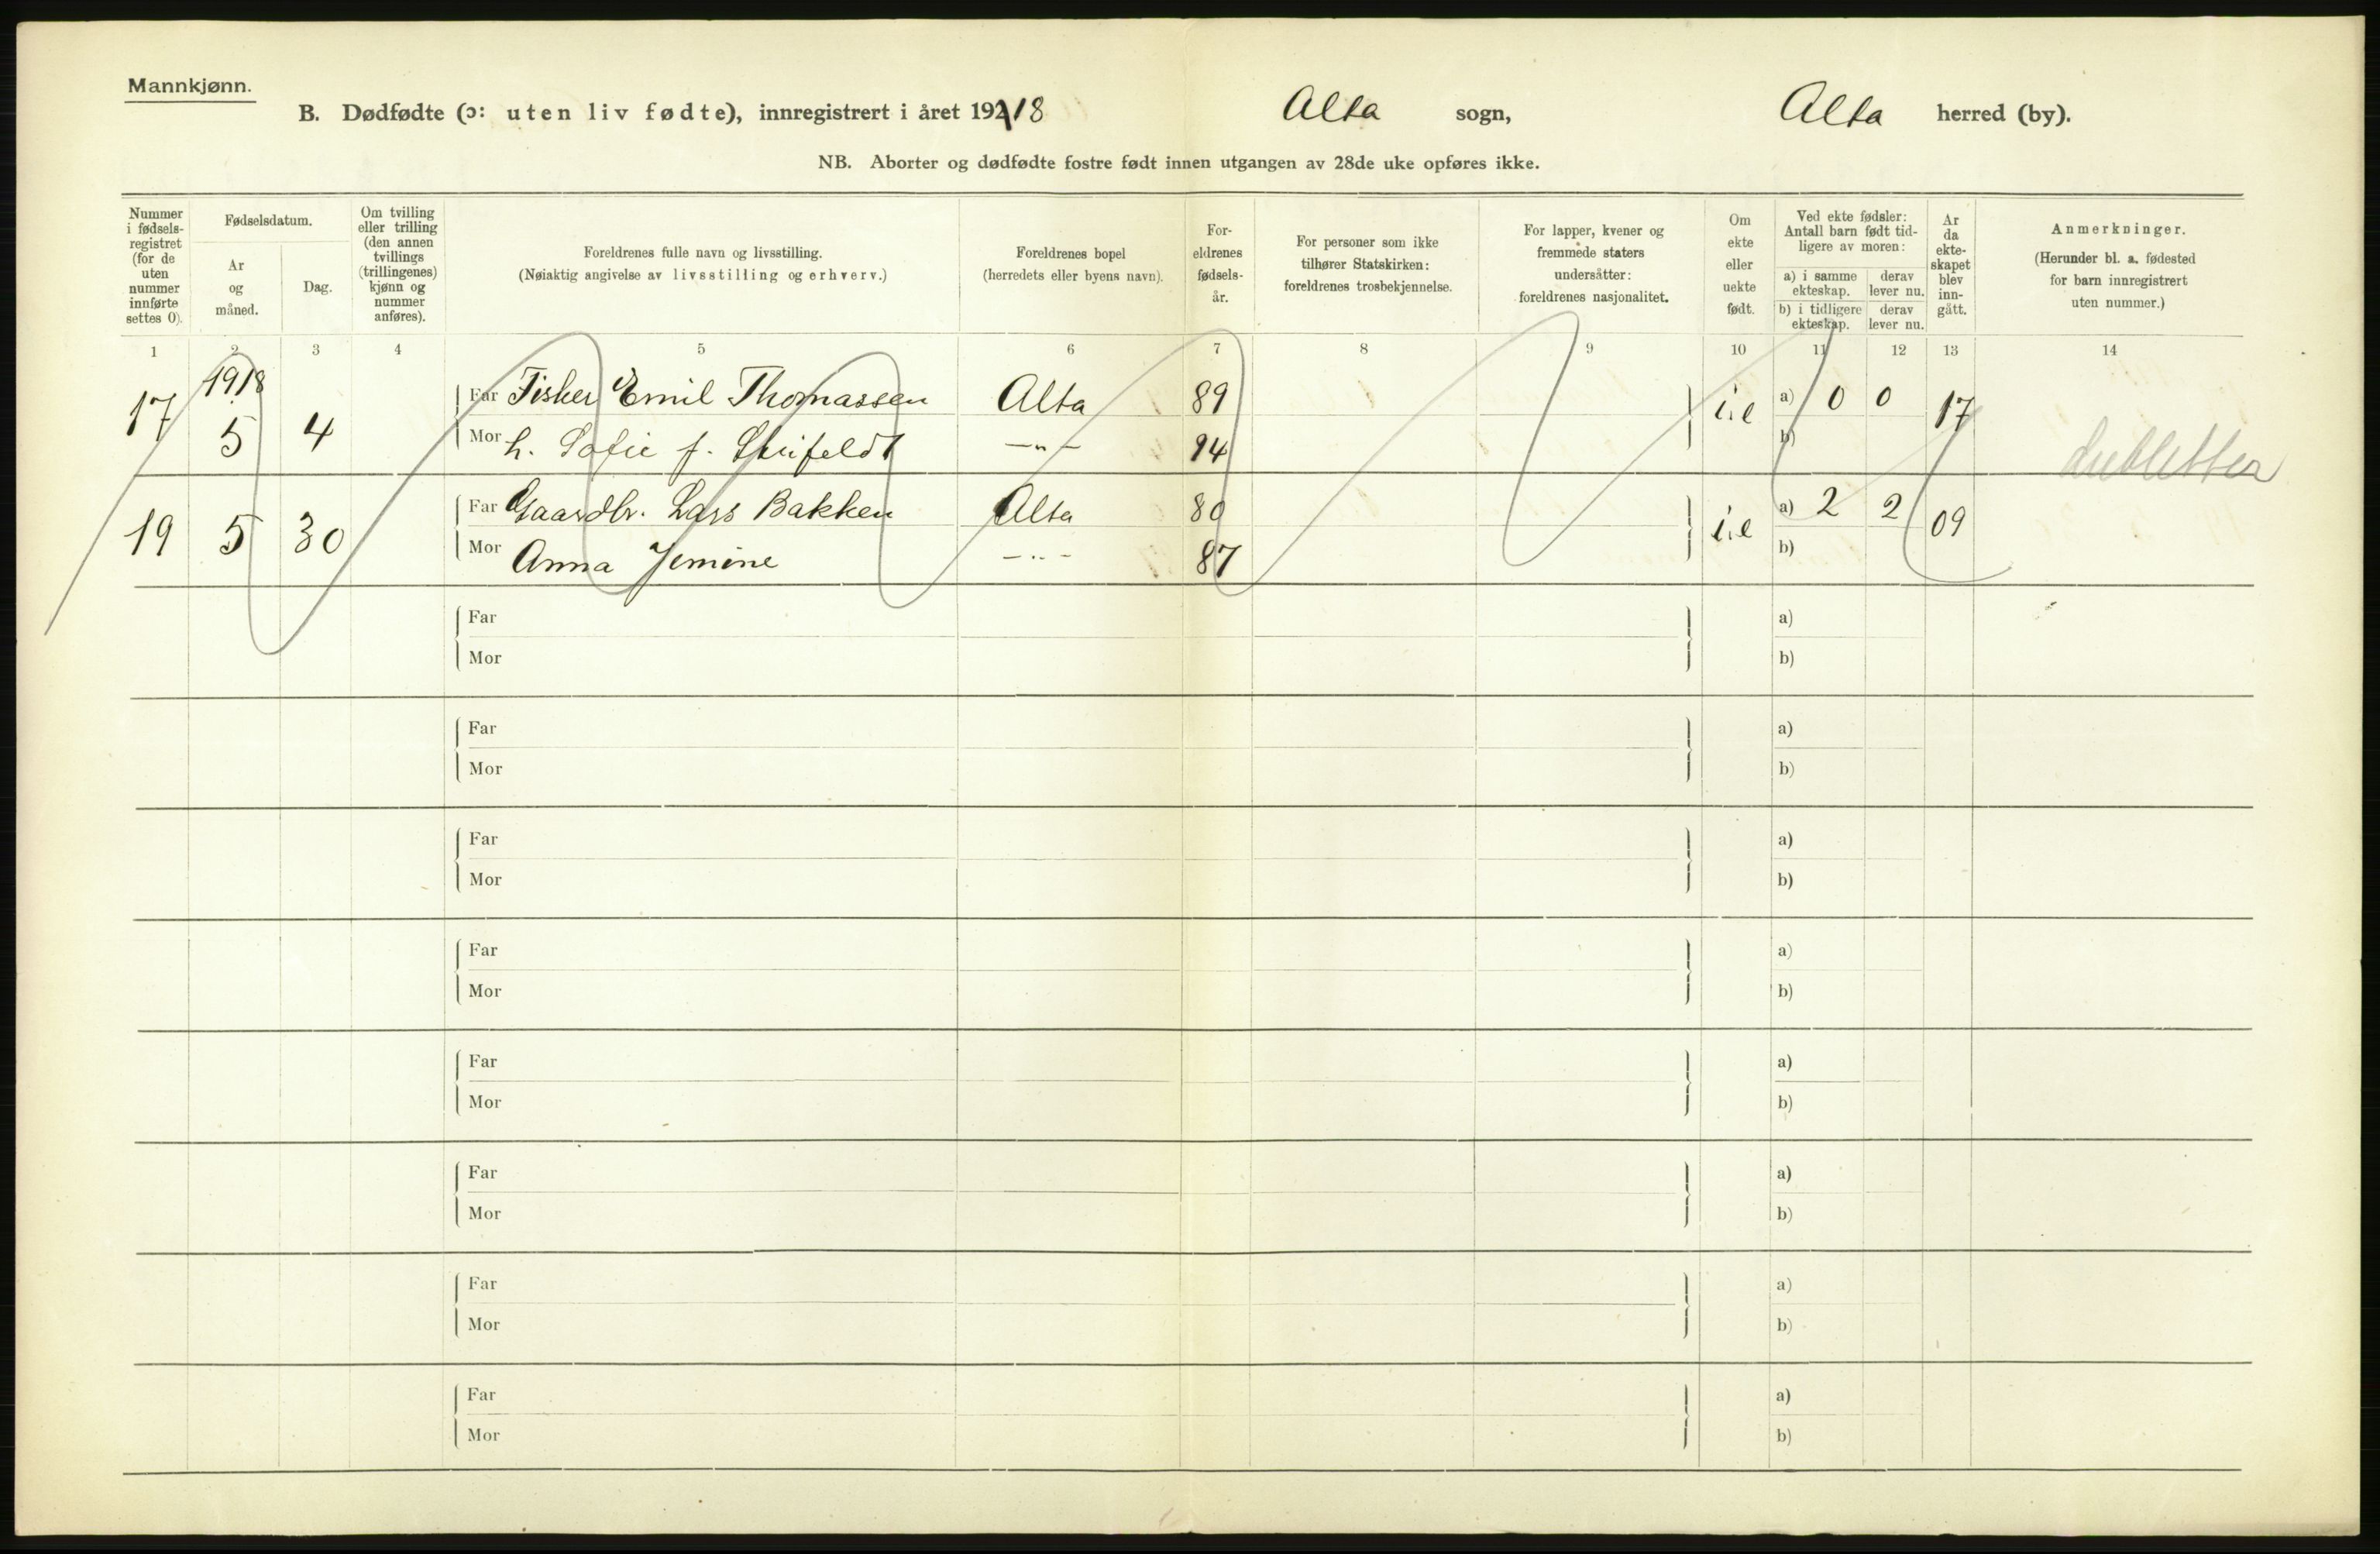 Mannkjønn.
B. Dødfødte (ɔ: uten liv fødte), innregistrert i året 19218 Alta sogn, Alta herred (by).
NB. Aborter og dødfødte fostre født innen utgangen av 28de uke opføres ikke.
Nummer i fødselsregistret (for de uten nummer innførte settes 0).
Fødselsdatum.
Ar og måned.
Dag.
Om tvilling eller trilling (den annen tvillings (trillingenes) kjønn og nummer anføres).
Foreldrenes fulle navn og livsstilling.
(Nøiaktig angivelse av livsstilling og erhverv.)
Foreldrenes bopel
(herredets eller byens navn).
Foreldrenes fødselsår.
For personer som ikke tilhører Statskirken: foreldrenes trosbekjennelse.
For lapper, kvener og fremmede staters undersåtter: foreldrenes nasjonalitet.
Om ekte eller uekte født.
Ved ekte fødsler: Antall barn født tidligere av moren:
a) i samme ekteskap. derav lever nu.
b) i tidligere ekteskap. derav lever nu.
Ar da ekteskapet blev inngått.
Anmerkninger.
(Herunder bl. a. fødested for barn innregistrert uten nummer.)
1 2 3 4 5 6 7 8 9 10 11 12 13 14
1918
17 5 4 Far Fisker Emil Thomassen Alta 89 i.e a) 0 0 17
Mor h. Sofie f. —"— 94 b)
dubletter
19 5 30 Far Gaardbr. Lars Bakken Alta 80 i.e a) 2 2 09
Mor Anna Jemine —"— 87 b)
Far a)
Mor b)
Far a)
Mor b)
Far a)
Mor b)
Far a)
Mor b)
Far a)
Mor b)
Far a)
Mor b)
Far a)
Mor b)
Far a)
Mor b)